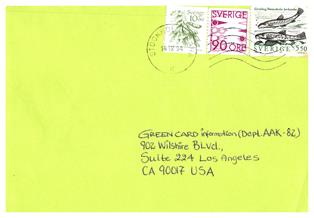 SVERIGE
10
SVERIGE
90 ÖRE
SVERIGE 5.50
GREEN CARD information (Dept. AAK-82)
902 Wilshire Blvd.,
Suite 224 Los Angeles
CA 90017 USA